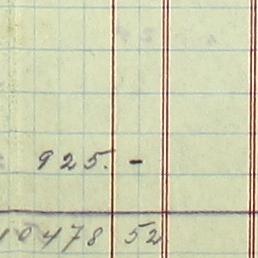 925. -
10478 52